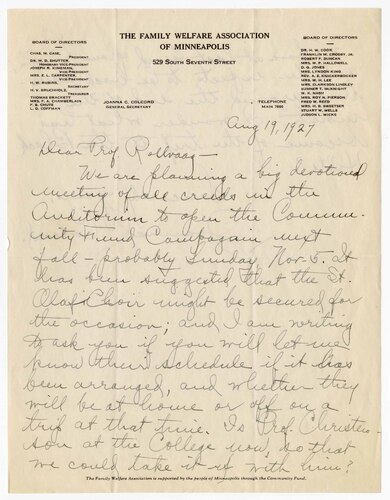 THE FAMILY WELFARE ASSOCIATION
OF MINNEAPOLIS
529 SOUTH SEVENTH STREET
BOARD OF DIRECTORS
CHAS. W. CASE,
PRESIDENT
DR. M. D. SHUTTER
HONORARY VICE-PRESIDENT
JOSEPH R. KINGMAN,
VICE-PRESIDENT
MRS. E. L. CARPENTER,
VICE-PRESIDENT
H. W. RUBINS,
SECRETARY
H. V. BRUCHHOLZ,
TREASURER
THOMAS BRACKETT
MRS. F. A. CHAMBERLAIN
F. B. CHUTE
L. D. COFFMAN
BOARD OF DIRECTORS
DR. H. W. COOK
FRANKLIN M. CROSBY, JR.
ROBERT F. DUNCAN
MRS. W. P. HALLOWELL
D. G. JONES
MRS. LYNDON KING
REV. A. E. KNICKERBOCKER
MRS. W. H. LEE
MRS. CLARKSON LINDLEY
SUMNER T. MCKNIGHT
W. K. NASH
MRS. ROY H. PIERSON
FRED W. REED
MRS. H. S. SWEETSER
STUART W. WELLS
JUDSON L. WICKS
JOANNA C. COLCORD
GENERAL SECRETARY
TELEPHONE
MAIN 7801
Aug 19, 1927
Dear Prof Rollvaag-
We are planning a big devotional
meeting of all creeds in the
Auditorium to open the Commu-
nity Fund Campaign next
fall - probably Sunday, Nov. 5. It
has been suggested that the St.
Olaf Choir might be secured for
the occasion; and I am writing
to ask you if you will let me
know their schedule if it has
been arranged, and whether they
will be at home or off on a
trip at that time. Is Prof. Christen-
son at the College now, so that
we could take it up with him?
The Family Welfare Association is supported by the people of Minneapolis through the Community Fund.